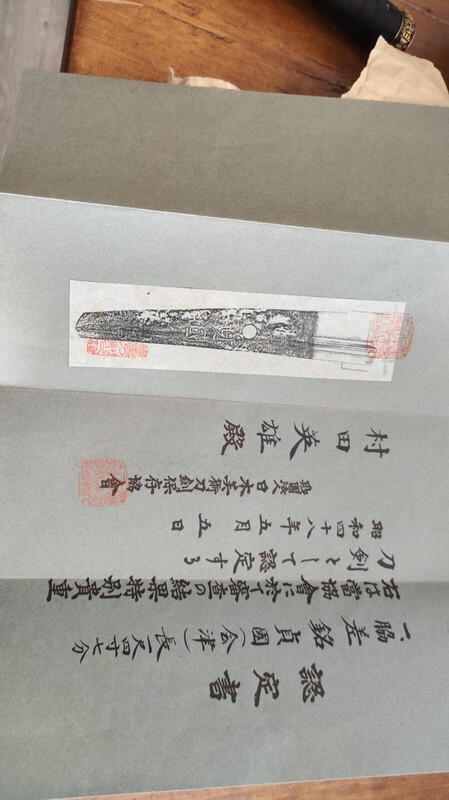 認定書
一、脇差 銘 貞國(会津) 長一尺四寸七分
右は當協會に於て審査の結果特別貴重
刀剣として認定する
昭和四十八年五月五日
財團法人日本美術刀剣保存協會
村田英雄殿